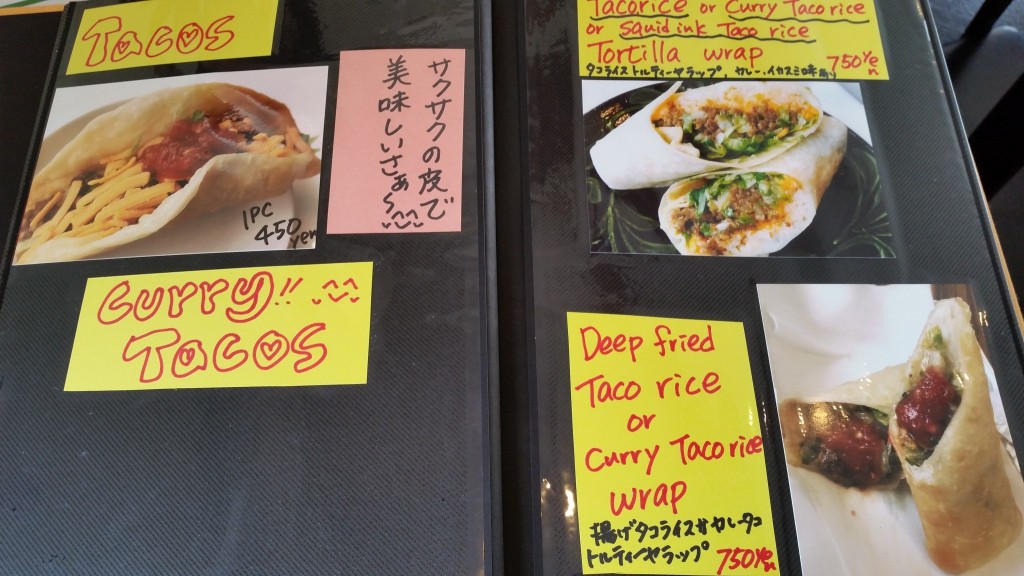 Tacos
サクサクの皮で
美味しいさぁ〜^^
1PC
450
yen
Curry!! ^^
Tacos
Tacorice or Curry Tacorice
or Squid ink Taco rice
Tortilla wrap 750Yen
タコライストルティーヤラップ、カレー、イカスミ味あり
Deep fried
Taco rice
or
Curry Taco rice
wrap
揚げタコライスオカレータコ
トルティーヤラップ 750Yen